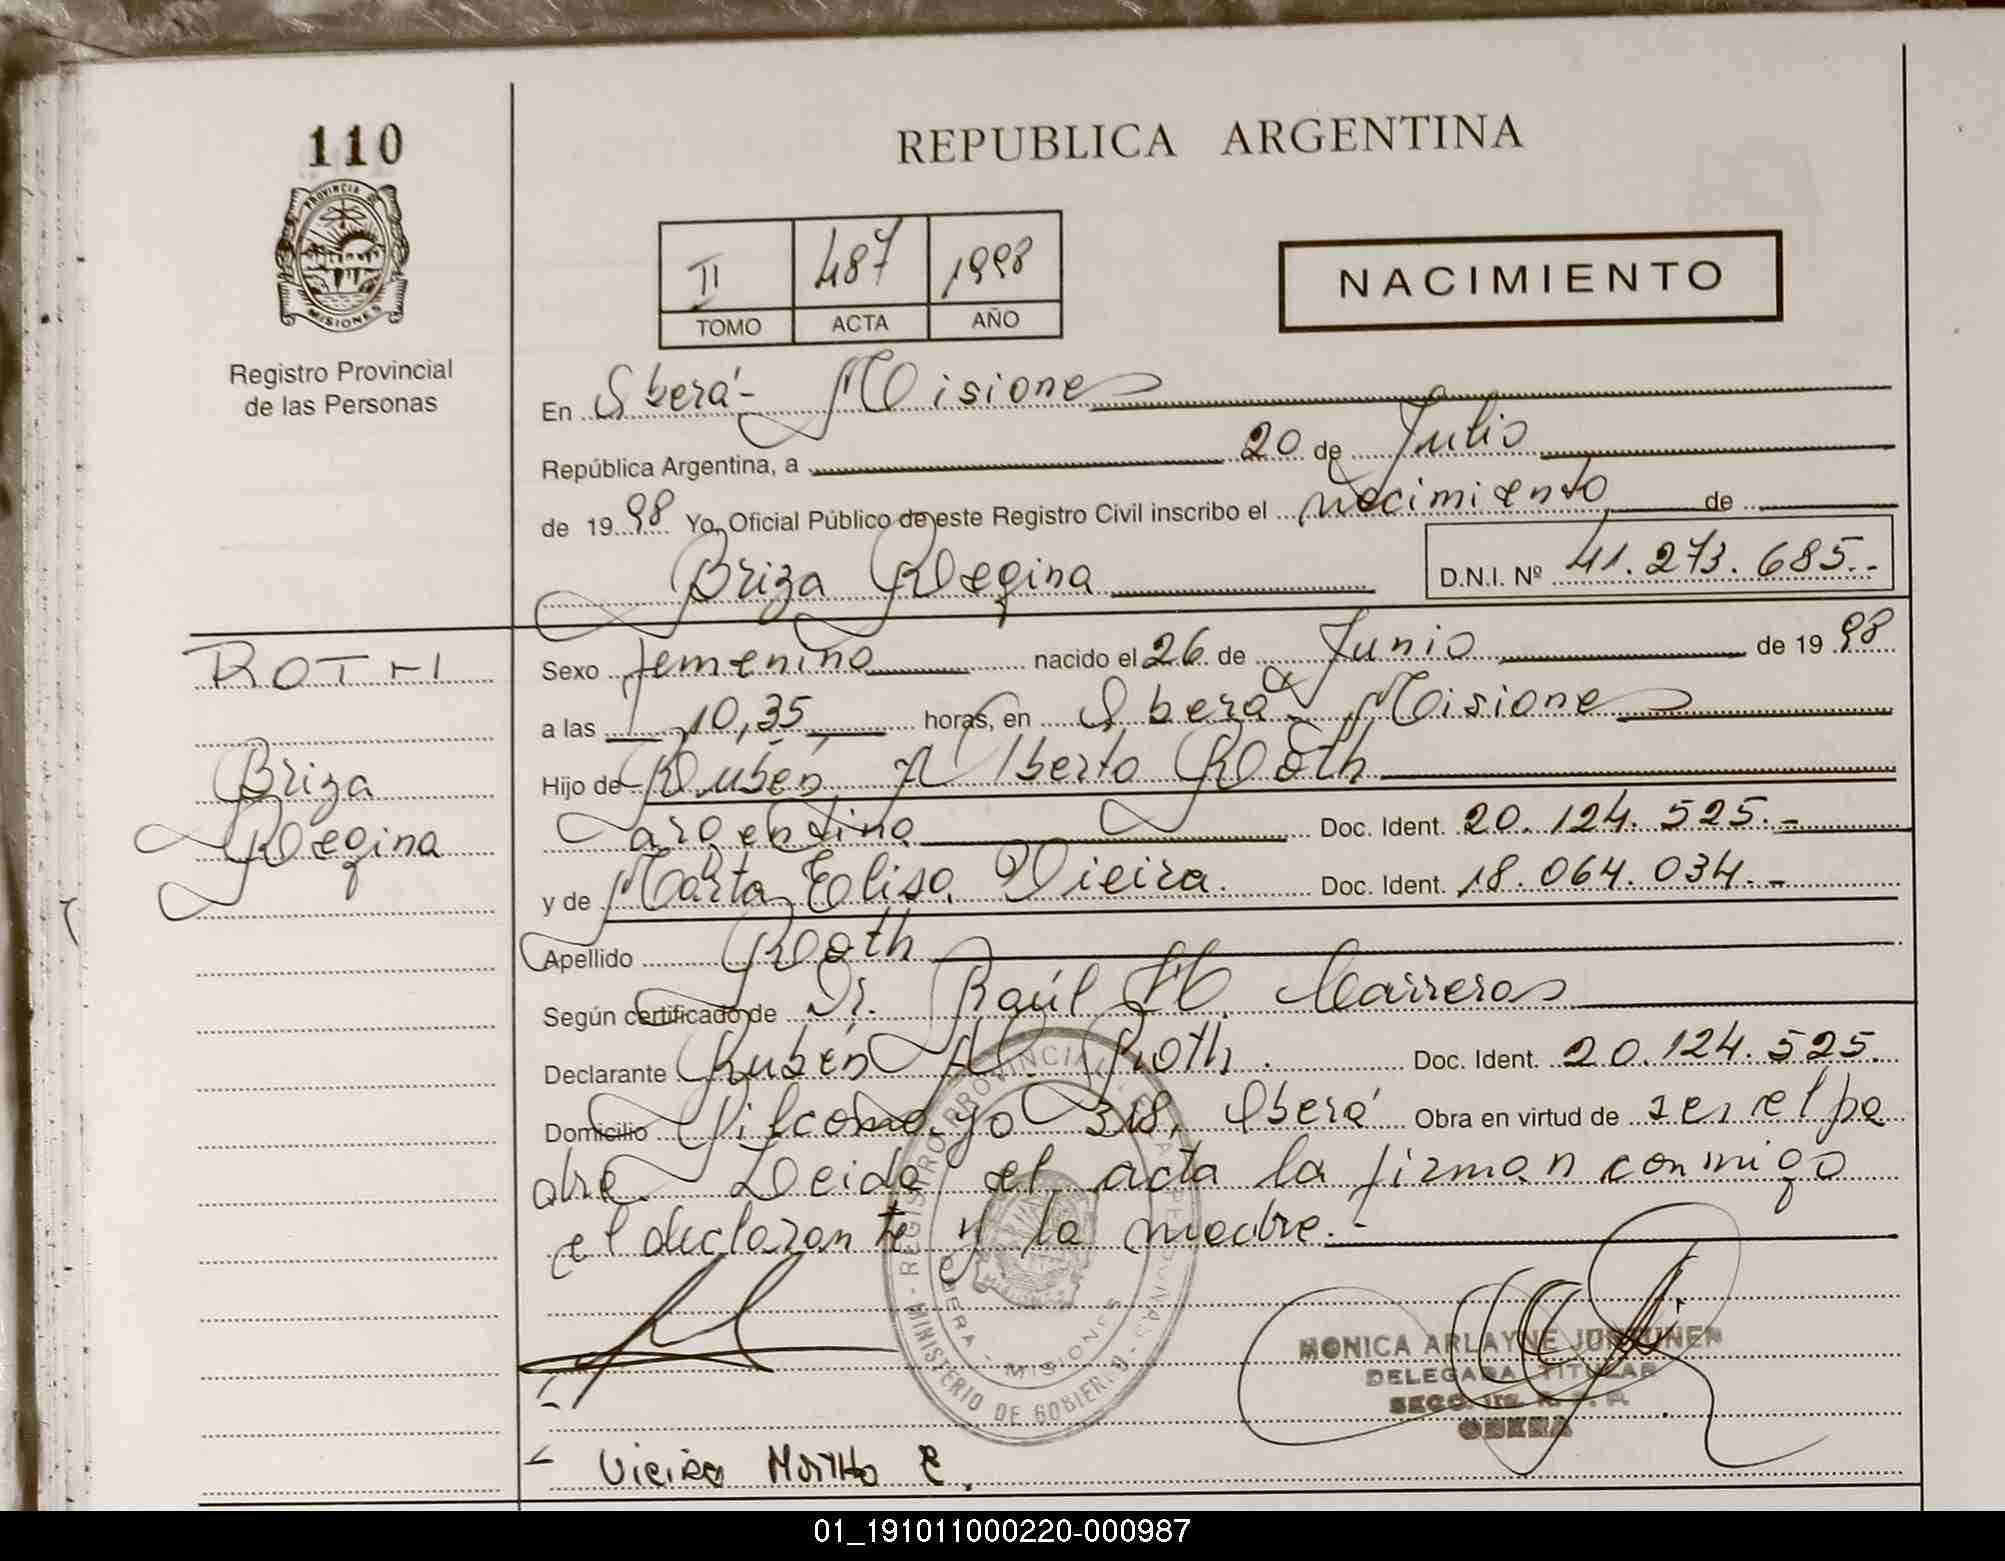 110
PROVINCIA DE
MISIONES
Registro Provincial
de las Personas
REPUBLICA ARGENTINA
II 487 1998
TOMO ACTA AÑO
NACIMIENTO
En Oberá - Misiones
República Argentina, a 20 de Julio
de 19 98 Yo, Oficial Público de este Registro Civil inscribo el nacimiento de
Briza Regina D.N.I. Nº 41.273.685.-
ROTH
Briza
Regina
Sexo femenino nacido el 26 de Junio de 19 98
a las 10,35 horas, en Oberá - Misiones
Hijo de Rubén Alberto Roth
argentino Doc. Ident. 20.124.525.-
y de Marta Elisa Vieira. Doc. Ident. 18.064.034.-
Apellido Roth
Según certificado de Dr. Raúl H. Marreros
Declarante Rubén A. Roth. Doc. Ident. 20.124.525.
Domicilio Pilcomayo 318, Oberá Obra en virtud de ser el pa
dre. Leida el acta la firman conmigo
el declarante y la madre.-
- REGISTRO PROVINCIAL DE LAS PERSONAS -
MINISTERIO DE GOBIERNO
OBERA - MISIONES
MONICA ARLAYNE
DELEGADA TITULAR
OBERA
Vieira Martha E.
01_191011000220-000987